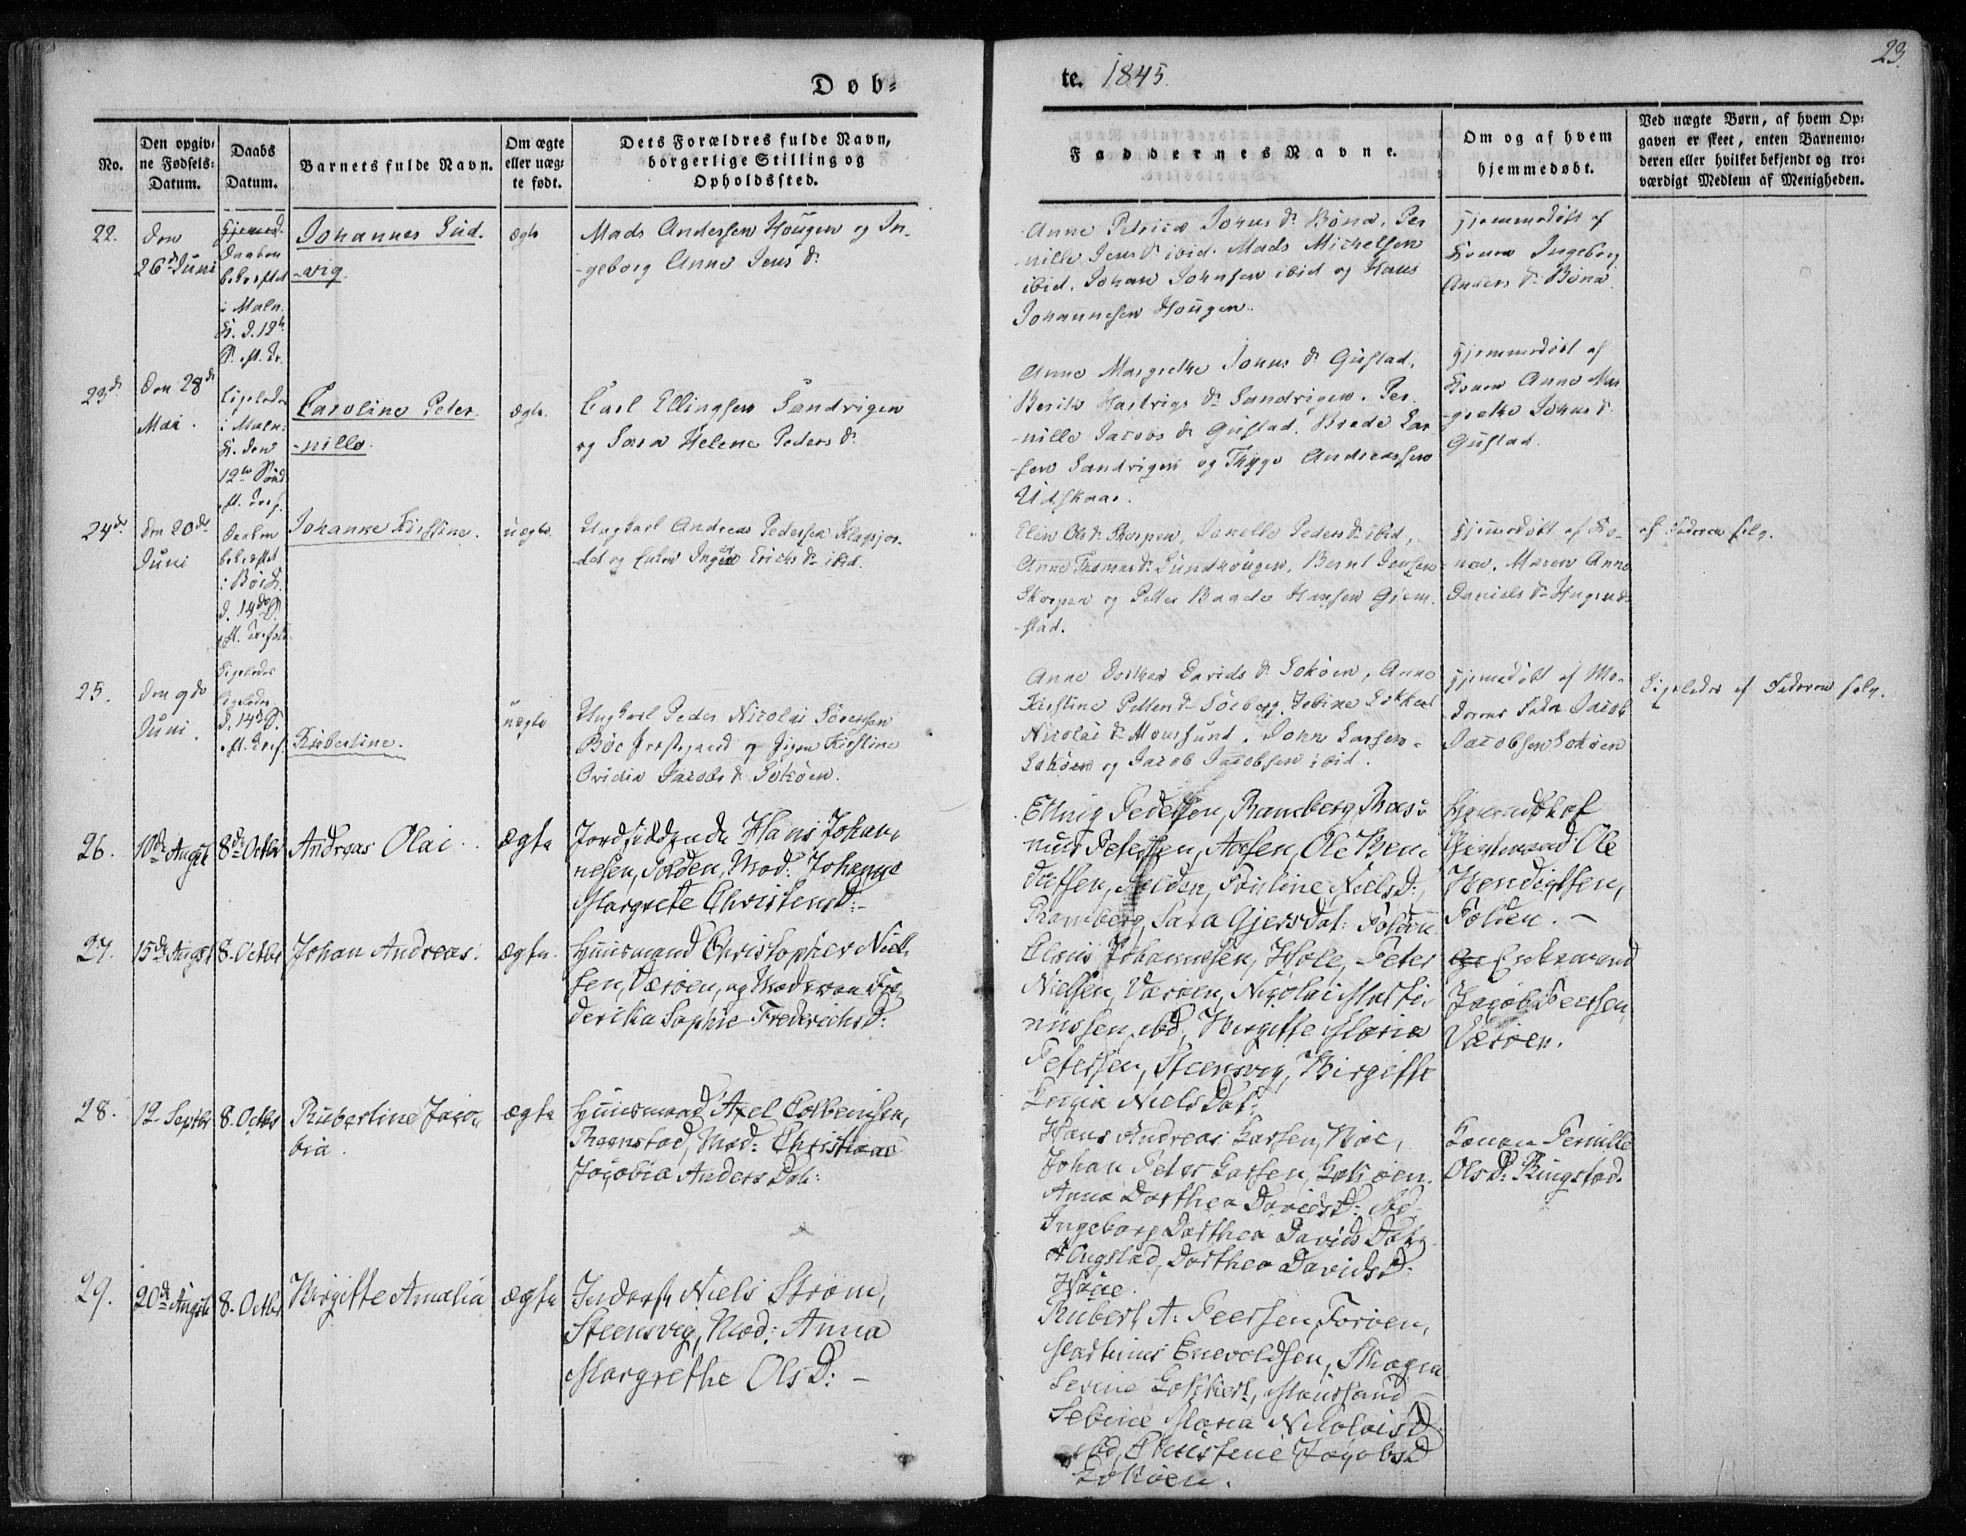 Døb=
te. 1845.
23.
No.
Den opgiv=
ne Fødsels=
Datum.
Daabs
Datum.
Barnets fulde Navn.
Om ægte
eller uæg=
te født.
Dets Forældres fulde Navn,
borgerlige Stilling og
Opholdssted.
Faddernes Navne.
Om og af hvem
hjemmedøbt.
Ved uægte Børn, af hvem Op=
gaven er skeet, enten Barnemo=
deren eller hvilket bekjendt og tro=
værdigt Medlem af Menigheden.
22.
den
26d Juni
Hjemd.
Daaben
bekræftet
i Maln.
K. d. 12te
S. eft. Tr.
Johannes Lud-
-vig.
ægte
Mads Andersen Hougen og In-
-geborg Anne Jens d.
Anne Petrica Johns d. Bönæ, Per
-nille Jens d. ibid. Mads Mickelsen
ibid. Johan Johnsen ibid og Hans
Johannesen Hougen.
Hjemmedöbt af
Konen Ingeborg
Anders d. Bönæ
23de
Den 28de
Mai.
Ligeledes
i Maln.
K. den
12te Sönd
eft. Tref.
Caroline Peter-
-nille.
ægte.
Carl Ellingsen Sandvigen
og Sara Helene Peders d.
Anne Margrethe Johns d. Gustad,
Berith Hartvigs d. Sandvigen, Per-
-nille Jacobs d. Gustad, Brede Lar-
-sen Sandvigen og Thyge Andreassen
Utskaar.
Hjemmedöbt af
Konen Anne Mar
-grethe Johns d.
Gustad
24de
den 20de
Juni
Daaben
bekræftet
i Böe K.
d. 14de S.
eft. Trefold.
Johanne Kirstine.
uægte
Ungkarl Andreas Pedersen Klapjor-
-det og Enken Inger Erichs d. ibid.
Elen Ols d. Skorpen, Jonelle Peders d. ibid,
Anne Thomas d. Sundhougen, Bernt Jensen
Skorpen og Petter Baade Hansen Gjem-
-stad.
Hjemmedöbt af Ko-
nen, Maren Anne
Daniels d.
af Faderen selv.
25.
den 9de
Juni.
Ligeledes
ligeledes
d. 14de S.
eft. Tref.
Rubertine.
uægte
Ungkarl Peder Nicolai Sörensen
Böe Prestegaard og Pigen Kirstine
Ovidia Jacobs d. Sokøen.
Anne Dorthea Davids d. Sokøen, Anne
Kirstine Petters d. Solberg, Sebine Lokkert
Nicolai d. Mousund, John Larsen
Sokøen og Jacob Jacobsen ibid.
Hjemedöbt af Mo-
derens Fader Jacob
Jacobsen Sokøen
Ligeledes af Faderen selv.
26.
10de Augst
8de Octbr
Andreas Olai.
ægte
Jordsiddende Hans Johan-
nesen, Folden, Mod: Johanna
Margrete Christensd:-
Elling Pedersen, Ramberg, Ras=
mus Petersen, Aasen, Ole Hen-
driksen, Folden, Kirstine Nielsd:,
Ramberg, Sara Gjersdat: Folden
Hjemmedøbt af
Ole
Hendigtsen,
Folden. -
27.
15de Augst
8. Octbr
Johan Andreas.
ægte.
Huusmand Christopher Niel-
sen, Værøen, og Moderen Fre
derikka Sophie Frederichsd:
Claus Johannesen, Hole, Peter
Nielsen, Værøen, Nicolai Marti-
nussen, ibd, Birgitte Maria
Petersen, Steensvig, Birgitte
Lucia Niels Dat:
Enkemand
Jacob Peersen,
Værøen.
28.
12. Septbr
8. Octbr
Rubertine Jaco-
bia.
ægte
Huusmand Axel Colbeinsen,
Ramstad, Mod: Christiane
Jacobia Anders Dat:
Hans Andreas Larsen, Böe,
Johan Peter Larsen, Sokøen.
Anna Dorthea Davids D: ibd.
Ingeborg Dorthea Davids Datr.
Ringstad, Dorthea Davids D:
Houe.
Konen Pernille
Ols D: Ringstad.
29.
20de Augst
8. Octbr
Birgitte Amalia
ægte
Inderst Niels Strøm,
Steensvig, Mod: Anna
Margrethe Ols D: -
Rubert A: Peersen, Forøen,
Martinus Enevoldsen, Skagen
Sevine Lokkert, Maursund
Sebine Maria Nikolais D
ibd, Christine Jacobs D
Sokøen.